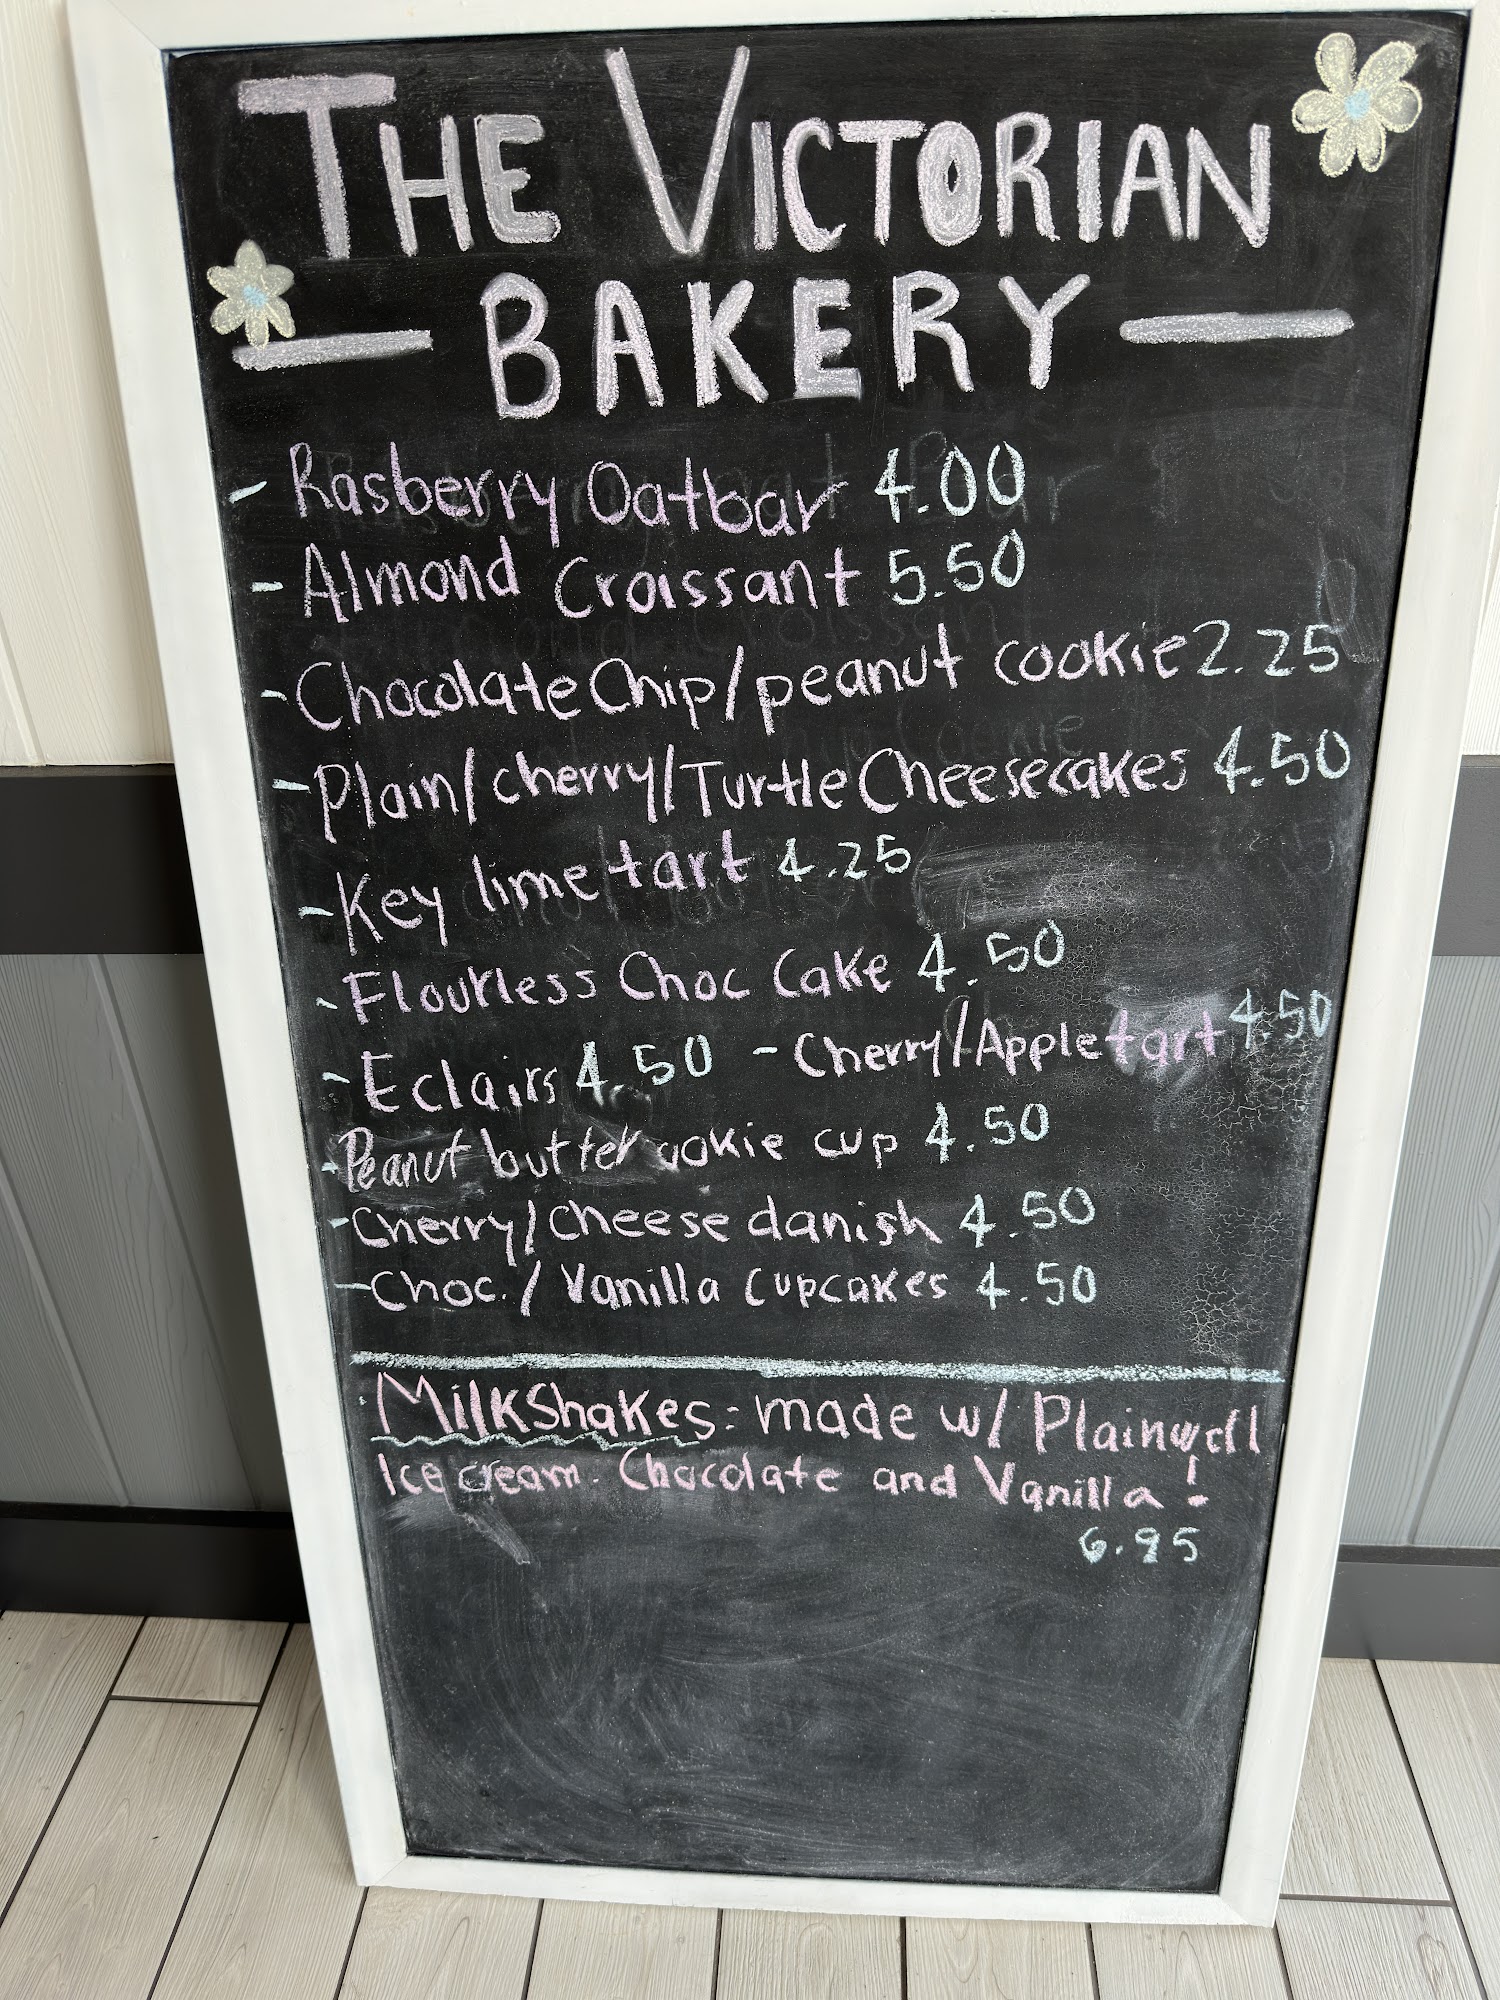 THE VICTORIAN
— BAKERY —
- Rasberry Oatbar 4.00
- Almond Croissant 5.50
- Chocolate Chip/peanut cookie 2.25
- Plain/cherry/Turtle Cheesecakes 4.50
- Key lime tart 4.25
- Flourless Choc Cake 4.50
- Eclairs 4.50 - Cherry/Apple tart 4.50
- Peanut butter ookie cup 4.50
- Cherry/Cheese danish 4.50
- Choc./Vanilla cupcakes 4.50
MilkShakes: made w/ Plainwell
Ice cream. Chocolate and Vanilla!
6.95